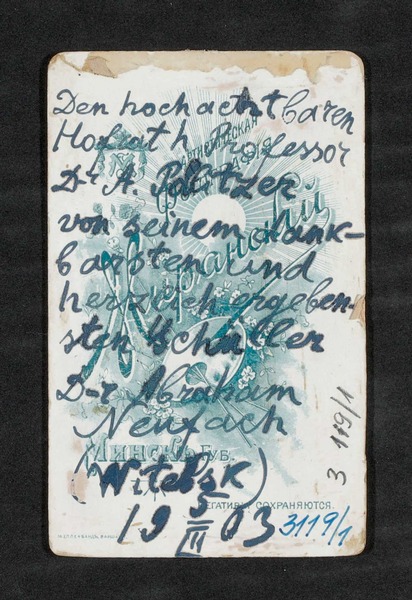 Den hochachtbaren
Hofrath Professor
D-r A. Politzer
von seinem dank-
barsten und
herzlich ergeben-
sten Schüler
D-r Abraham
Neufach
(Witebsk)
19 5/III 03
АРТИСТИЧЕСКАЯ
МИНСКЪ ГУБ.
НЕГАТИВЫ СОХРАНЯЮТСЯ.
3119/1
3 119/1